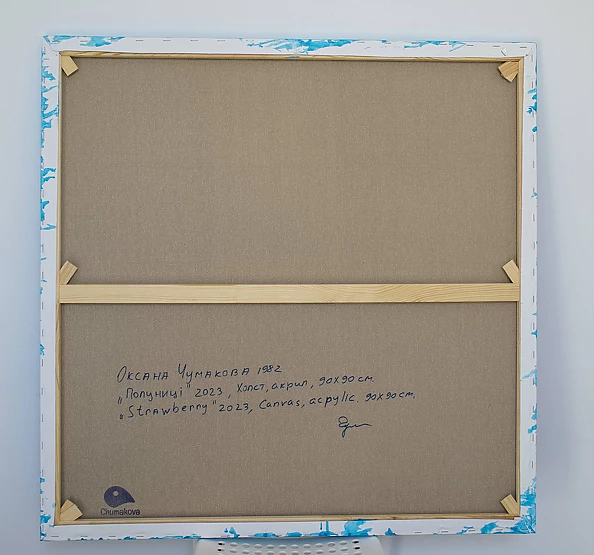 Оксана Чумакова 1982
„Полуниці" 2023, Холст, акрил, 90х90 см.
„Strawberry" 2023, Canvas, acrylic. 90x90 cm.
Chumakova